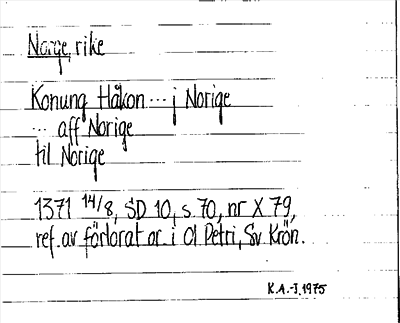 Norge, rike
Konung Håkon --- j Norige
--- aff Norige
til Norige
1371 14/8, SD 10, s. 70, nr X 79,
ref. av förlorat or. i Ol Petri, Sv. Krön.
K.A.-J. 1975